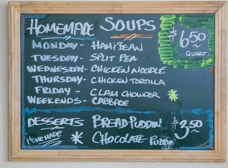 HOMEMADE SOUPS
$6.50
QUART
MONDAY - HAM/BEAN
TUESDAY - SPLIT PEA
WEDNESDAY - CHICKEN NOODLE
THURSDAY - CHICKEN TORTILLA
FRIDAY - CLAM CHOWDER
WEEKENDS -
DESSERTS BREAD PUDDIN' $3.50
HOMEMADE CHOCOLATE PUDDIN'